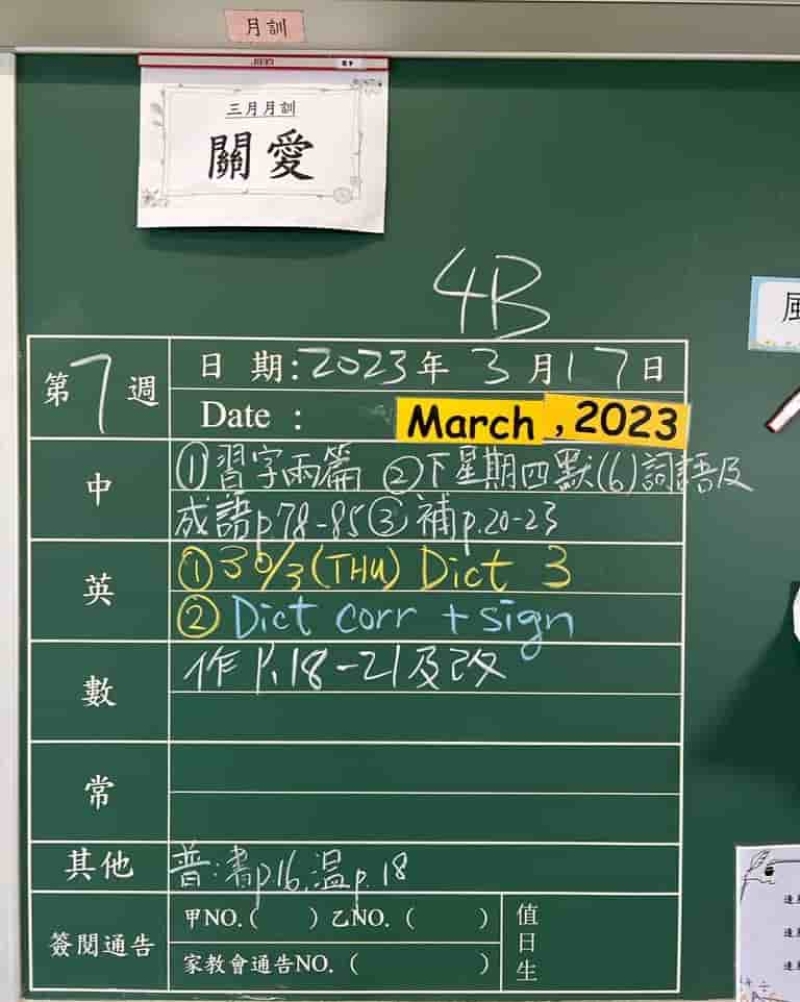 月訓
三月月訓
關愛
4B
第7週
日 期:2023年 3月17日
Date : March , 2023
中
①習字兩篇 ②下星期四默(6)詞語及
成語p.78-85③補p.20-23
英
①30/3(THU) Dict 3
② Dict corr + sign
數
作 P.18-21及改
常
其他
普:書p16,温p.18
簽閱通告
甲NO.( )乙NO.( )
家教會通告NO.( )
值日生
風